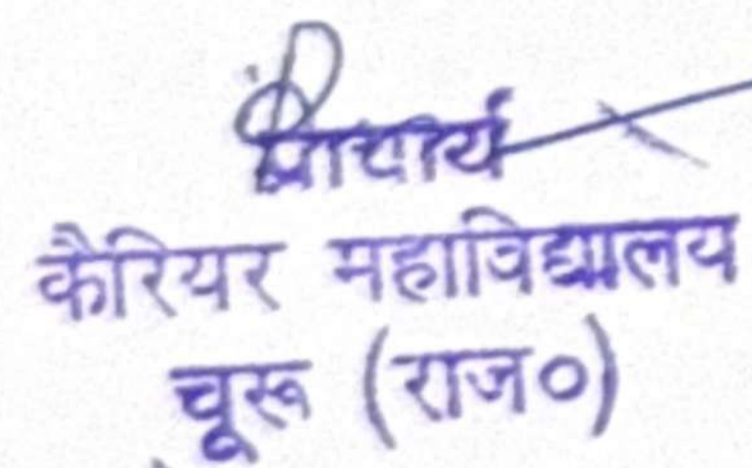 प्राचार्य
कैरियर महाविद्यालय
चूरू (राज०)